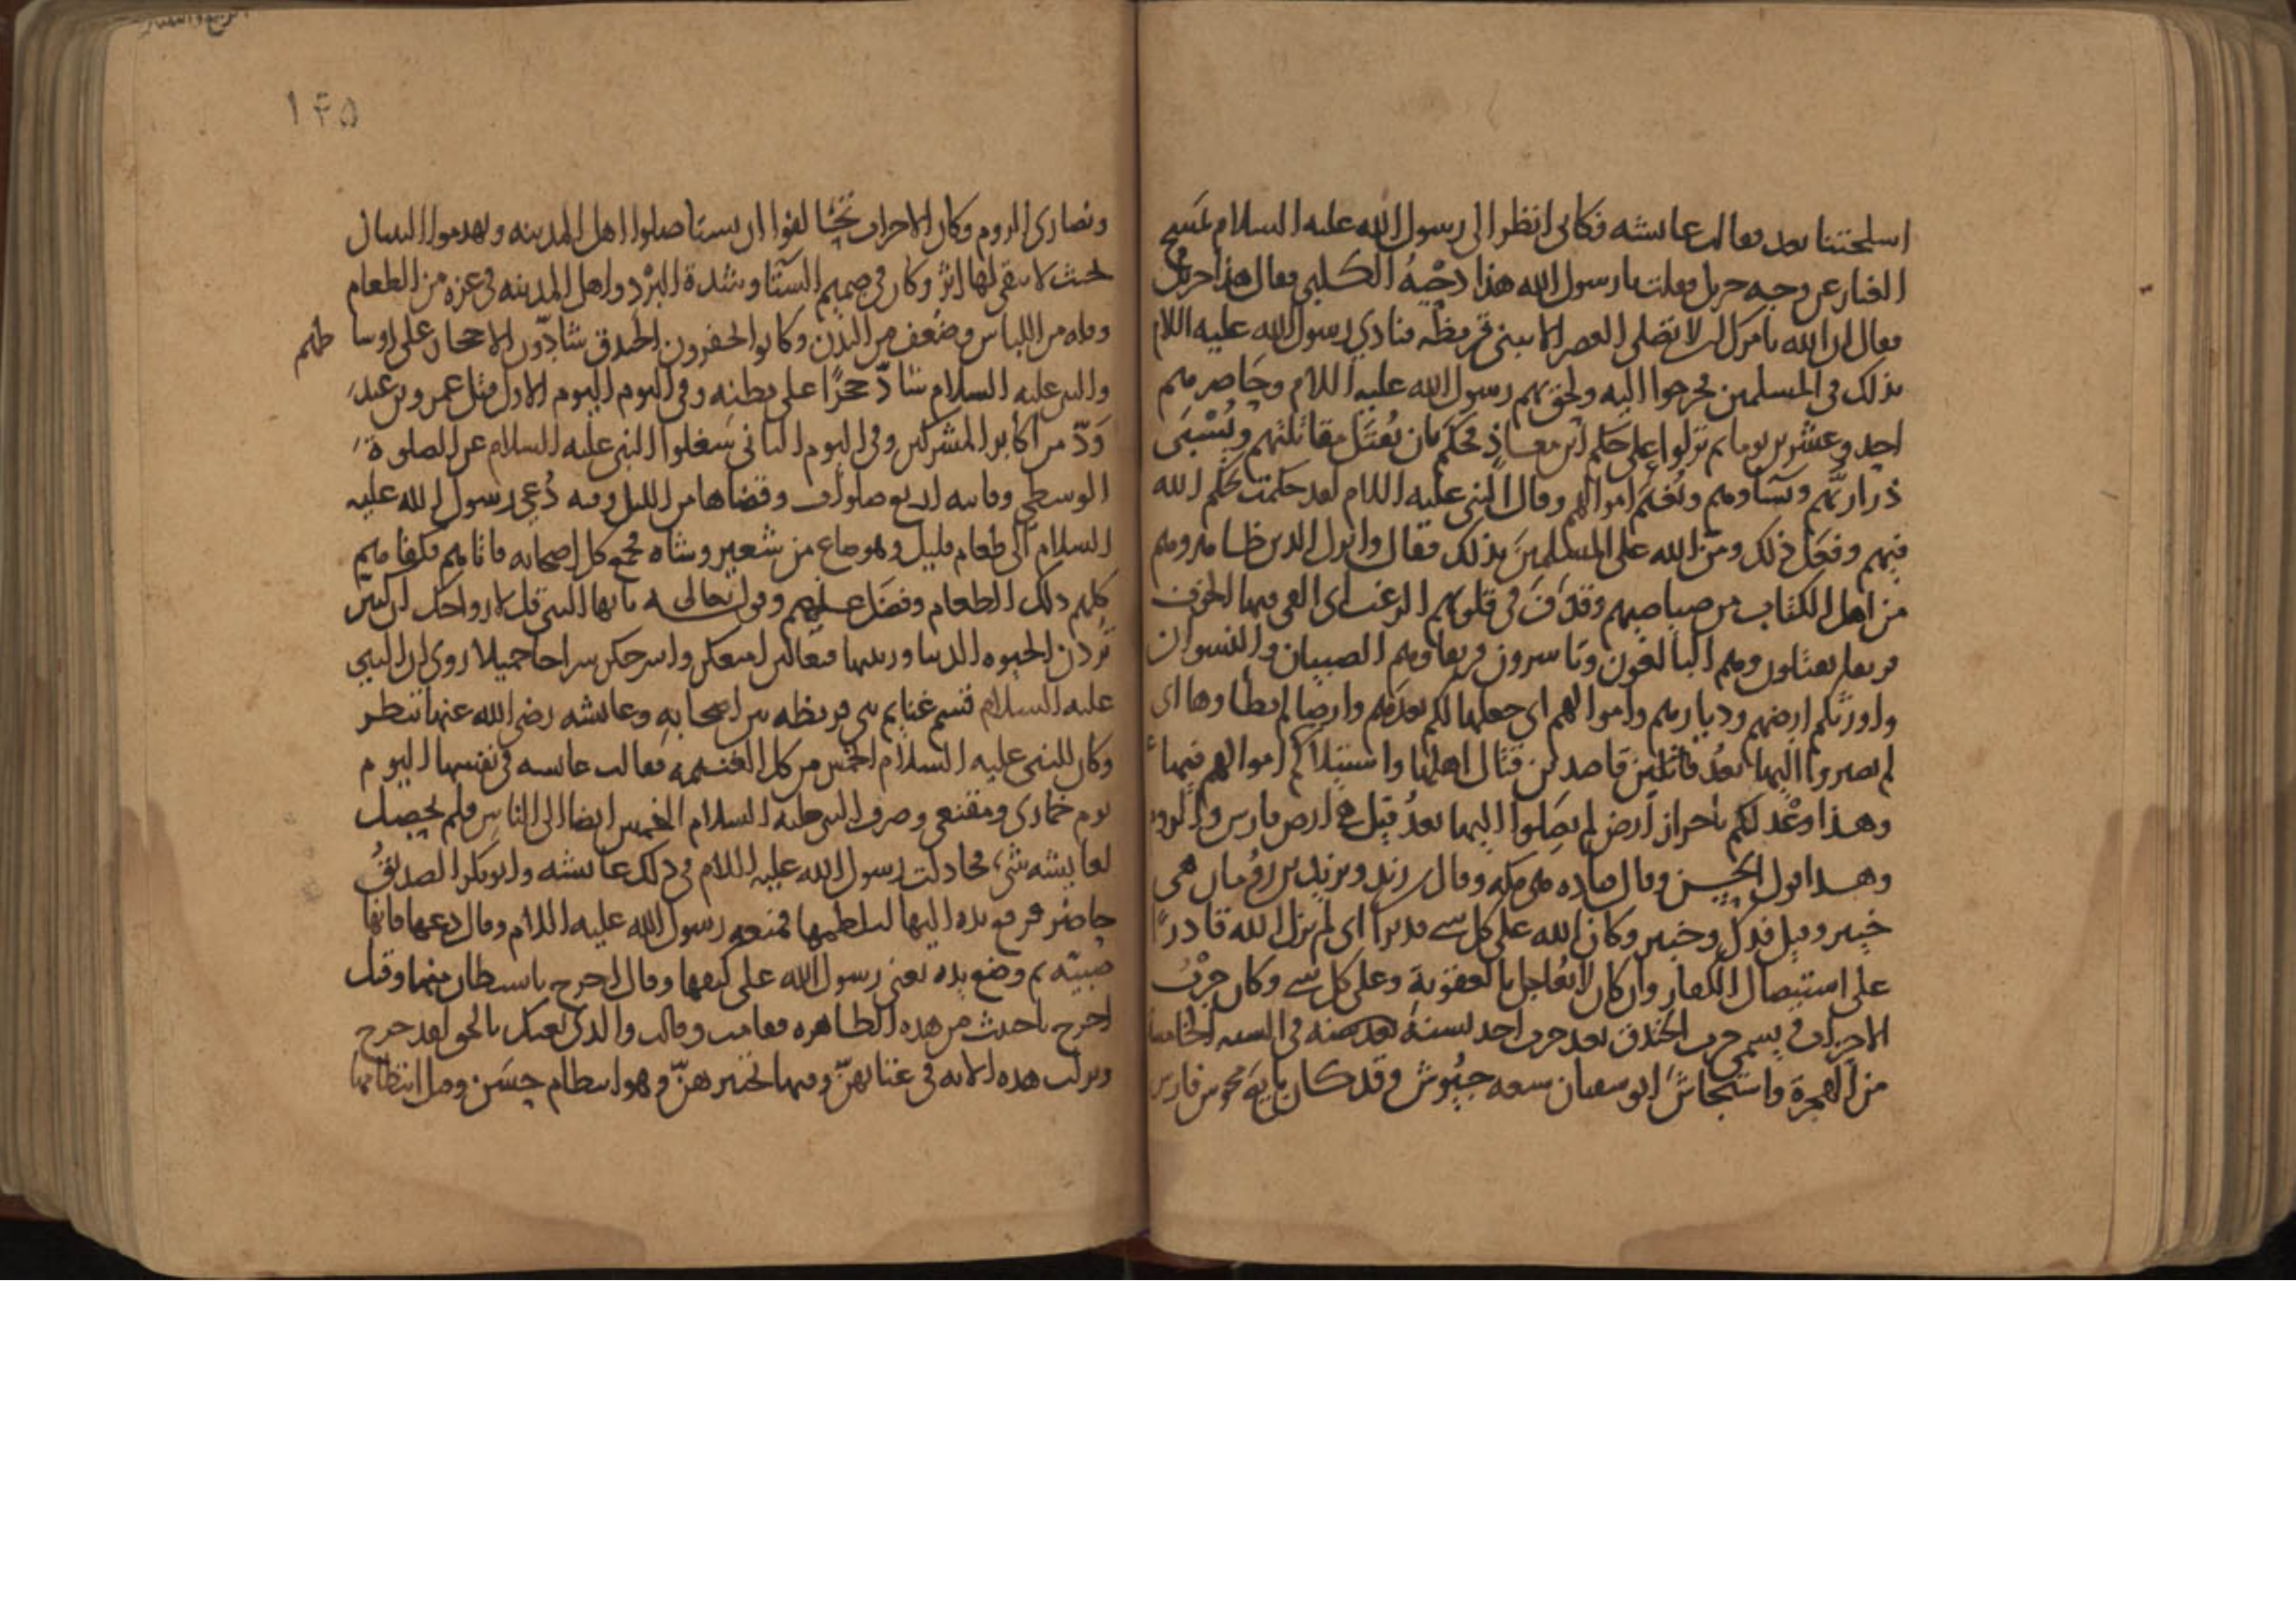 اسلحتنا بعد فقالت عائشه فكاني انظر الى رسول الله عليه السلام يمسح
الغبار عن وجه جبريل فقلت يا رسول الله هذا دحية الكلبي فقال هذا جبريل
فقال ان الله يامرك ان لا تصلي العصر الا ببني قريظه فنادي رسول الله عليه السلام
بذلك في المسلمين فخرجوا اليه ولحق بهم رسول الله عليه السلام وحاصرهم
احد وعشرين يوما ثم نزلوا على حكم ابن معاذ فحكم بان يقتل مقاتلتهم ويسبى
ذراريهم ونساؤهم وتغنم اموالهم وقال النبي عليه السلام لقد حكمت بحكم الله
فيهم وفعل ذلك ومن الله على المسلمين بذلك فقال وانزل الذين ظاهروهم
من اهل الكتاب من صياصيهم وقذف في قلوبهم الرعب اي القى فيها الخوف
فريقا يقتلون وهم البالغون وتاسرون فريقا وهم الصبيان والنسوان
واورثكم ارضهم وديارهم واموالهم اي جعلها لكم بعدهم وارضا لم يطاوها اي
لم يصيروا اليها بعد قاتلين قاصدين قتال اهلها واستيلاكم اموالهم فيها
وهذا وعد لكم باحراز ارض لم يصلوا اليها بعد قيل هي ارض فارس والروم
وهذا قول الحسن وقال قتاده هي مكه وقال ابن زيد ويزيد بن رومان هي
خيبر وقيل فدك وخيبر وكان الله على كل شي قديرا اي لم يزل الله قادرًا
على استيصال الكفار وان كان لا يعاجل بالعقوبة وعلى كل شي وكان حرب
الاحزاب يسمى حرب الخندق بعد حرب احد لسنة في السنه الخامسة
من الهجرة واستجاش ابو سفيان سعه جيوش وقد كان يايه مجوس فارس
١٤٥
ونصارى الروم وكان الاحزاب تحالفوا ان يستاصلوا اهل المدينه ويهدموا البنيان
بحيث لا يبقى لها اثر وكان في صميم الشتا وشدة البرد واهل المدينه في عزه من الطعام
وقله من اللباس وضعف من البدن وكانوا يحفرون الخندق شادّين الاحجار على اوساطهم
والنبي عليه السلام شادّ حجرًا على بطنه وفي اليوم الاول قتل عمرو بن عبد
ودّ من اكابر المشركين وفي اليوم الثاني شغلوا النبي عليه السلام عن الصلوة
الوسطى وفاته اربع صلوات وقضاها من الليل وفيه دُعي رسول الله عليه
السلام الى طعام قليل وهو صاع من شعير وشاه فجمع كل اصحابه فاتاهم فكفاهم
كلهم ذلك الطعام وفضل عليهم وقوله تعالى يايها النبي قل لازواجك ان كنتن
تردن الحيوه الدنيا وزينتها فتعالين امتعكن واسرحكن سراحا جميلا روى ان النبي
عليه السلام قسم غنايم بني قريظه بين اصحابه وعائشه رضي الله عنها تنظر
وكان للنبي عليه السلام الخمس من كل الغنيمه فقالت عائشه في نفسها اليوم
يوم خماري ومقنعي وصرف النبي عليه السلام الخمس ايضا الى الناس فلم يحصل
لعايشه شيء فجادلت رسول الله عليه السلام في ذلك عائشه وابو بكر الصديق
حاضر فرفع يده اليها ليلطمها فمنعه رسول الله عليه السلام وقال دعها فانها
صبيّه ثم وضع يده يعني رسول الله على كتفها وقال اخرج يا شيطان منها وقيل
اخرج يا خبث من هذه الطاهره فقامت وقالت والذي بعثك بالحق لقد خرج
ونزلت هذه الايه في عتابهنّ وفيها تخييرهنّ وهو انتظام حسن وقيل انتظامها